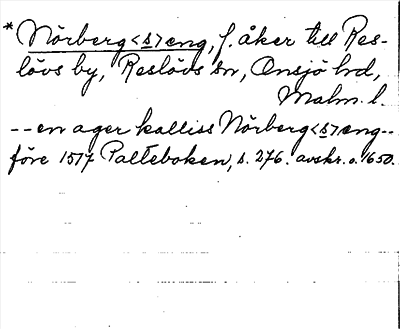 * Nörberg<s>eng, f. åker till Res-
lövs by, Reslövs sn, Onsjö hd,
Malm. l.
-- en ager kalliss Nörberg<s>eng --
före 1517 Palteboken, s. 276. avskr. o. 1650.